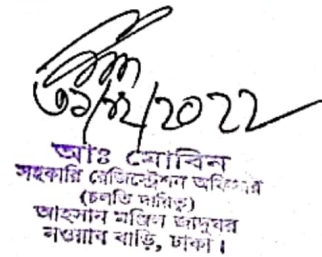 ৩১/১২/2022
আঃ মোবিন
সহকারি রেজিস্ট্রেশন অফিসার
(চলতি দায়িত্ব)
আহসান মঞ্জিল জাদুঘর
নওয়াব বাড়ি, ঢাকা।